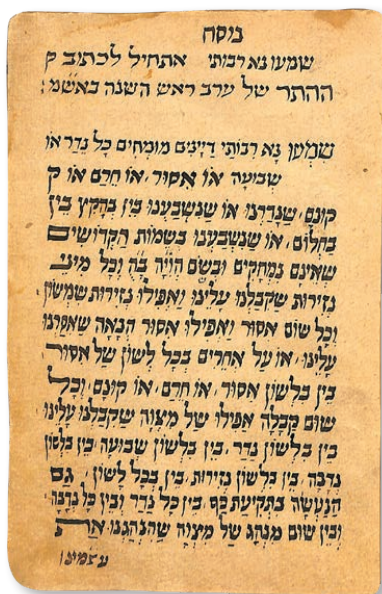 נוסח
שמעו נא רבותי אתחיל לכתוב ק
ההתר של ערב ראש השנה באשמ׃
שִׁמְעוּ נָא רַבּוֹתַי דַיָינִים מוּמְחִים כָּל נֵדֶר אוֹ
שְׁבוּעָה אוֹ אִסּוּר, אוֹ חֵרֶם אוֹ ק
קוֹנָם, שֶׁנָדַרְנוּ אוֹ שֶׁנִשְׁבַּעְנוּ בֵּין בְּהָקֵץ בֵּין
בַּחֲלוֹם, אוֹ שֶׁנִשְׁבַּעְנוּ בְּשֵׁמוֹת הַקְדוֹשִׁים
שֶׁאֵינָם נִמְחָקִים וּבְשֵׁם הֲוָיָ״ה בָּ״ה וְכָל מִינֵי
נְזִירוּת שֶׁקִבַּלְנוּ עָלֵינוּ וַאֲפִילוּ נְזִירוּת שִׁמְשׁוֹן
וְכָל שׁוּם אִסּוּר וַאֲפִילוּ אִסּוּר הֲנָאָה שֶׁאָסַרְנוּ
עָלֵינוּ, אוֹ עַל אֲחֵרִים בְּכָל לָשׁוֹן שֶׁל אִסּוּר
בֵּין בִּלְשׁוֹן אִסּוּר, אוֹ חֵרֶם, אוֹ קוֹנָם, וְכָל
שׁוּם קַבָּלָה אֲפִילוּ שֶׁל מִצְוָה שֶׁקִבַּלְנוּ עָלֵינוּ
בֵּין בִּלְשׁוֹן נֵדֶר, בֵּין בִּלְשׁוֹן שְׁבוּעָה, בֵּין בִּלְשׁוֹן
נְדָבָה, בֵּין בִּלְשׁוֹן נְזִירוּת, בֵּין בְּכָל לָשׁוֹן, גַם
הַנַעֲשֶׂה בִּתְקִיעַת כַּף, בֵּין כָּל נֵדֶר וּבֵין כָּל נְדָבָה,
וּבֵין שׁוּם מִנְהָג שֶׁל מִצְוָה שֶׁהִנְהַגְנוּ אֶת
עצמינו